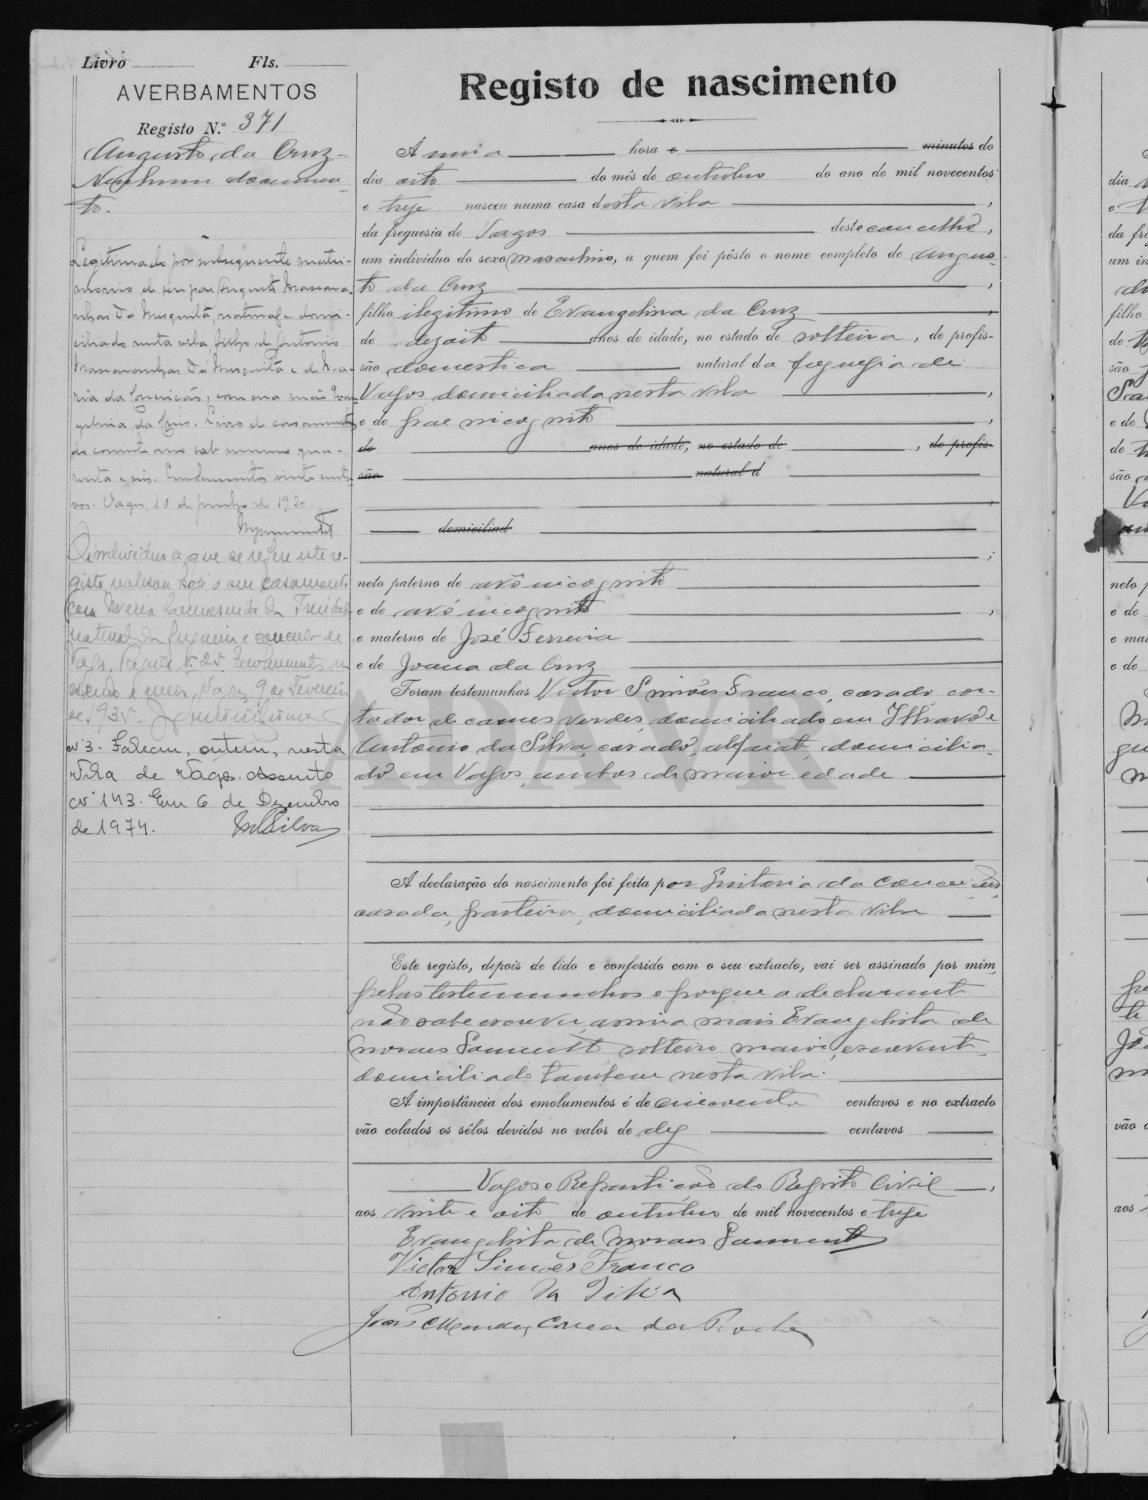 Livro Fls.
AVERBAMENTOS
Registo N.º 371
Augusto da Cruz -
Nenhum documen-
to.
Legitimado por subsequente matri-
monio de seu pai Augusto Mascara-
nhas da Mesquita, natural e domi-
ciliado nesta vila filho de Antonio
Mascaranhas da Mesquita e de Ma-
ria da Conceição, com sua mãe Evan
gelina da Cruz. Livro de casamentos
do corrente ano sob numero qua-
renta e seis. Emolumentos vinte centa
vos. Vagos, 10 de 1920.
O individuo a que se refere este re-
gisto realisou hoje o seu casamento
com Maria da Trindade
natural da freguesia e concelho de
Vagos. Registo N. 25. Emolumentos
Vagos, 9 de Fevereiro
de 1935.
nº 3. Faleceu, ontem, nesta
vila de Vagos. Assento
nº 143. Em 6 de Dezembro
de 1974. Silva
Registo de nascimento
Á uma hora e minutos do
dia oito do mês de outubro do ano de mil novecentos
e treze nasceu numa casa desta vila ,
da freguesia de Vagos deste concelho ,
um individuo do sexo masculino, a quem foi pôsto o nome completo de Augus-
to da Cruz ,
filho ilegitimo de Evangelina da Cruz
de dezoito anos de idade, no estado de solteira , de profis-
são domestica natural da freguezia de
Vagos domiciliada nesta vila ,
e de pae incognito ,
de anos de idade, no estado de , de profis-
são natural d
,
domiciliad
;
neto paterno de avô incognito
e de avó incognita ,
e materno de José Ferreira
e de Joana da Cruz
Foram testemunhas Victor Simões Franco, casado, cor-
tador de carnes verdes, domiciliado em Ilhavo e
Antonio da Silva, casado, alfaiate, domicilia-
do em Vagos, ambos de maior edade
A declaração do nascimento foi feita por da Conceição,
casada, parteira, domiciliada nesta vila
Este registo, depois de lido e conferido com o seu extracto, vai ser assinado por mim,
pelas testemunhas e porque a declarante
não sabe escrever, assina mais Evangelista de
Moraes Sarmento, solteiro, maior, escrevente,
domiciliado tambem nesta vila.
A importância dos emolumentos é de cincoenta centavos e no extracto
vão colados os sêlos devidos no valor de dez centavos
Vagos e Repartição do Registo Civil ,
aos vinte e oito de outubro de mil novecentos e treze
Evangelista de Moraes Sarmento
Victor Simões Franco
Antonio da Silva
João Mendes Correa da Rocha
ADAVR